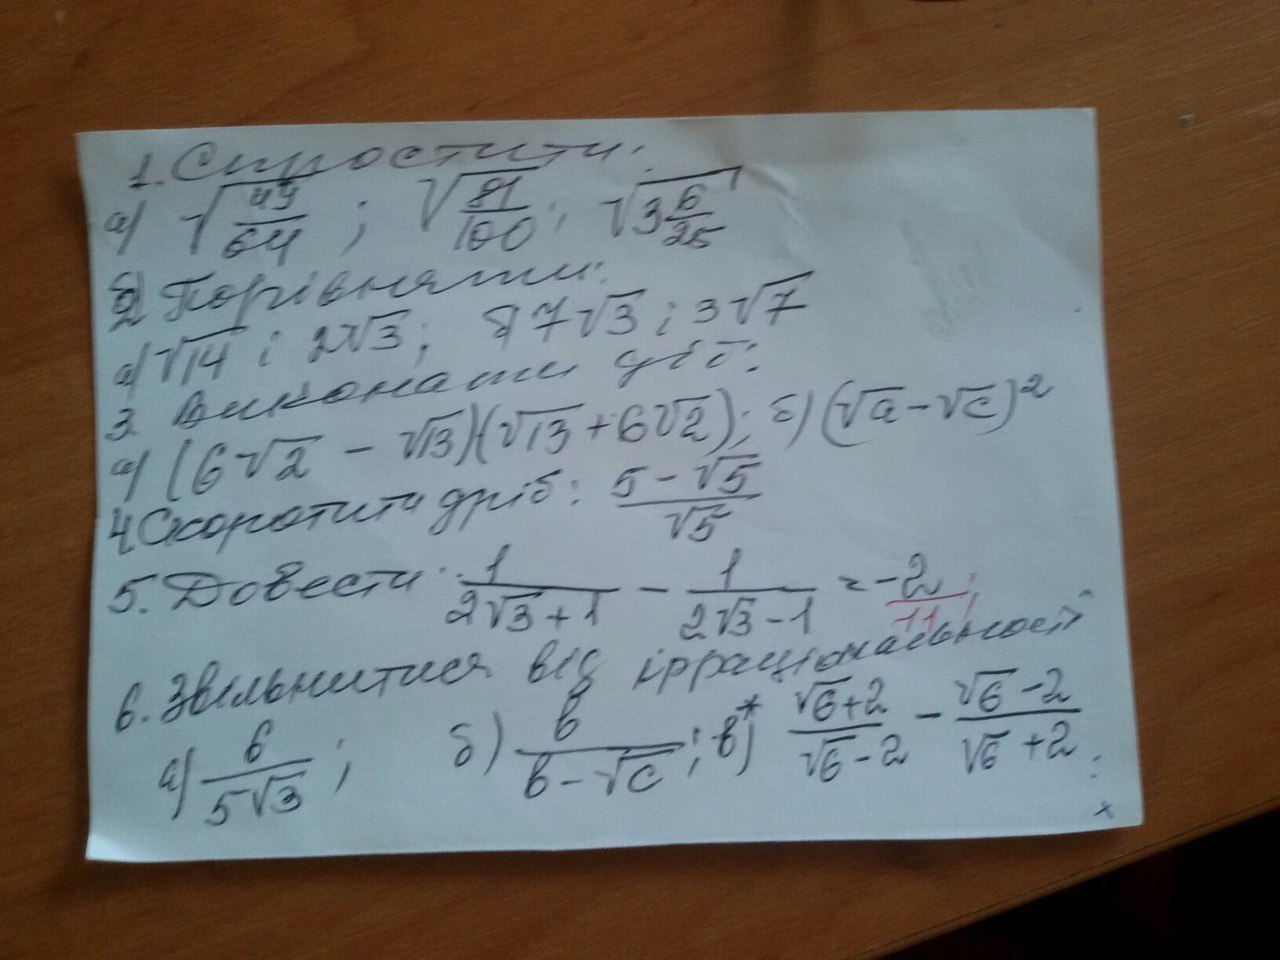 1. Спростити:
а) √(49/64) ; √(81/100) ; √(3 6/25)
2) Порівняти:
а) √14 і 2√3 ; б) 7√3 і 3√7
3. Виконати дії:
а) (6√2 - √13)(√13 + 6√2) ; б) (√a - √c)²
4 Скоротити дріб: (5 - √5)/√5
5. Довести: 1/(2√3 + 1) - 1/(2√3 - 1) = -2/11 ;
6. Звільнитися від ірраціональності
а) 6/(5√3) ; б) b/(b - √c) ; в)* (√6 + 2)/(√6 - 2) - (√6 - 2)/(√6 + 2)